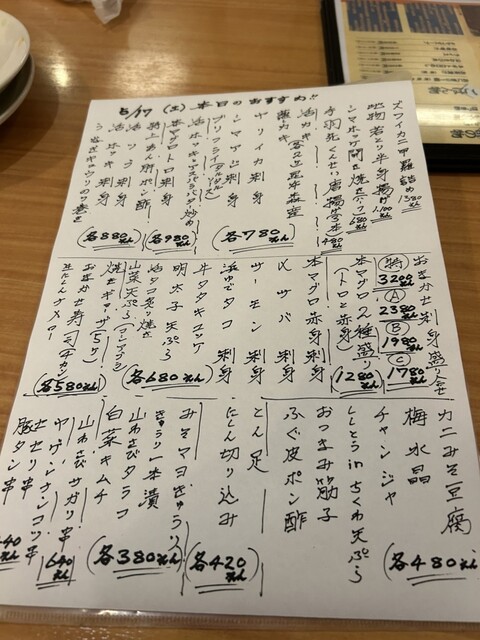 5/17 (土) 本日のおすすめ!!
ズワイカニ甲羅詰め 1380
地物若どり半身揚げ 1100
シマホッケ開き焼き 680
手羽先くんせい唐揚 480
活カキ
蒸しカキ
ヤリイカ刺身
シマゾイ刺身
(各780えん)
ブリフライ(タルタル)
活ホッキアスパラバター炒め
本マグロトロ刺身
(各980えん)
特上あん肝ポン酢
活ツブ刺身
活ホッキ刺身
うなぎキュウリのり巻き
(各880えん)
おまかせ刺身盛り合せ
(特) 3200えん
Ⓐ 2380
Ⓑ 1980
Ⓒ 1780えん
本マグロ2種盛り
(トロと赤身)
(1280えん)
本マグロ赤身刺身
〆サバ刺身
サーモン刺身
浜ゆでタコ刺身
牛タタキユッケ
明太子天ぷら
活タコ炙り焼き
山菜天ぷら
(各680えん)
焼きギョーザ(5ケ)
おまかせ寿司(4カン)
生たこザンギ
(各580えん)
カニみそ豆腐
梅水晶
チャンジャ
ししとうinちくわ天ぷら
おつまみ筋子
ふぐ皮ポン酢
(各480えん)
とん足
にしん切り込み
(各420えん)
みそマヨきゅうり
きゅうり一本漬
山わさびタラコ
白菜キムチ
(各380えん)
山わさびサガリ串
ヤゲンナンコツ串
土セセリ串
豚タン串
640えん